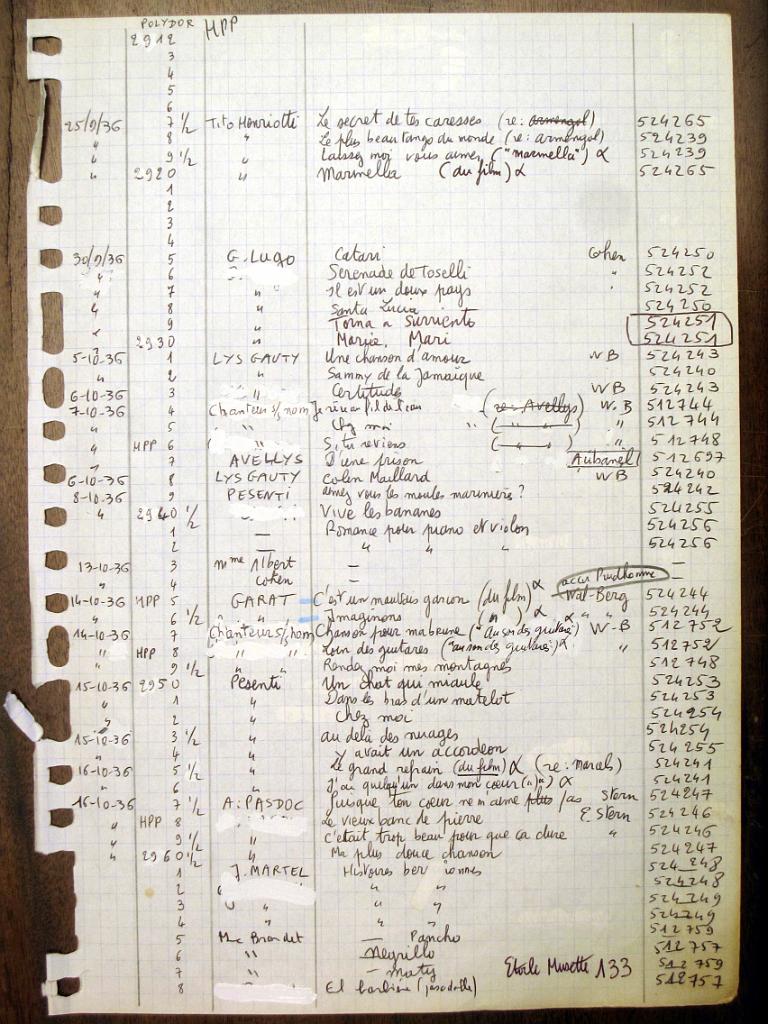 POLYDOR HPP
2912
3
4
5
6
25/9/36 7 1/2 Tito Henriotti Le secret de tes caresses (re: armengol) 524265
" 8 " Le plus beau tango du monde (re: armengol) 524239
" 9 1/2 " Laissez moi vous aimer ("marinella") α 524239
" 2920 " Marinella (du film) α 524265
1
2
3
4
30/9/36 5 G. Lugo Catari Cohen 524250
" 6 Serenade de Toselli " 524252
" 7 " il est un doux pays 524252
" 8 " Santa Lucia 524250
9 " Torna a Surriento 524251
" 2930 " Marie, Mari 524251
5-10-36 1 LYS GAUTY Une chanson d'amour WB 524243
" 2 " Sammy de la Jamaïque 524240
6-10-36 3 " Certitude WB 524243
7-10-36 4 Chanteur s/s nom Je rêve au fil de l'eau (re: Avellys) W.B 512744
" 5 " Chez moi " ( " ) " 512744
" HPP 6 " Si tu reviens ( " ) " 512748
" 7 AVELLYS D'une prison Aubanel 512697
6-10-36 8 LYS GAUTY Colin Maillard WB 524240
8-10-36 9 PESENTI aimez vous les moules marinière? 524242
" 2940 1/2 Vive les bananes 524255
1 — Romance pour piano et violon 524256
2 — " " " 524256
13-10-36 3 Mme Albert =
" 4 Cohen = accus Prudhomme =
14-10-36 HPP 5 GARAT C'est un mauvais garçon (du film) α Wal-Berg 524244
" 6 1/2 " Imaginons ( " ) α " 524244
14-10-36 7 Chanteur s/s nom Chanson pour ma brune ("Au son des guitares") α W-B 512752
" HPP 8 " " Loin des guitares ("au son des guitares") α " 512752
" 9 1/2 " " Rendez moi mes montagnes 512748
15-10-36 2950 Pesenti Un chat qui miaule 524253
" 1 " Dans les bras d'un matelot 524253
" 2 " Chez moi 524254
15-10-36 3 1/2 " au delà des nuages 524254
" 4 " Y avait un accordeon 524255
16-10-36 5 1/2 " Le grand refrain (du film) α (re: marcels) 524241
" 6 " J'ai quelqu'un dans mon coeur ( " ) α 524241
16-10-36 7 1/2 A. PASDOC Jusque ton coeur ne m'aime plus Stern 524247
" HPP 8 Le vieux banc de pierre E. Stern 524246
" 9 1/2 " c'etait trop beau pour que ça dure " 524246
" 2960 1/2 " Ma plus douce chanson 524247
1 J. MARTEL Histoires 524248
2 " " " 524248
3 " " " 524249
4 " " " 524249
5 Mc Brandet — Pancho 512759
6 " Negrillo 512757
7 " — Maty 512759
8 El (paso doble) 512757
Etoile Musette 133